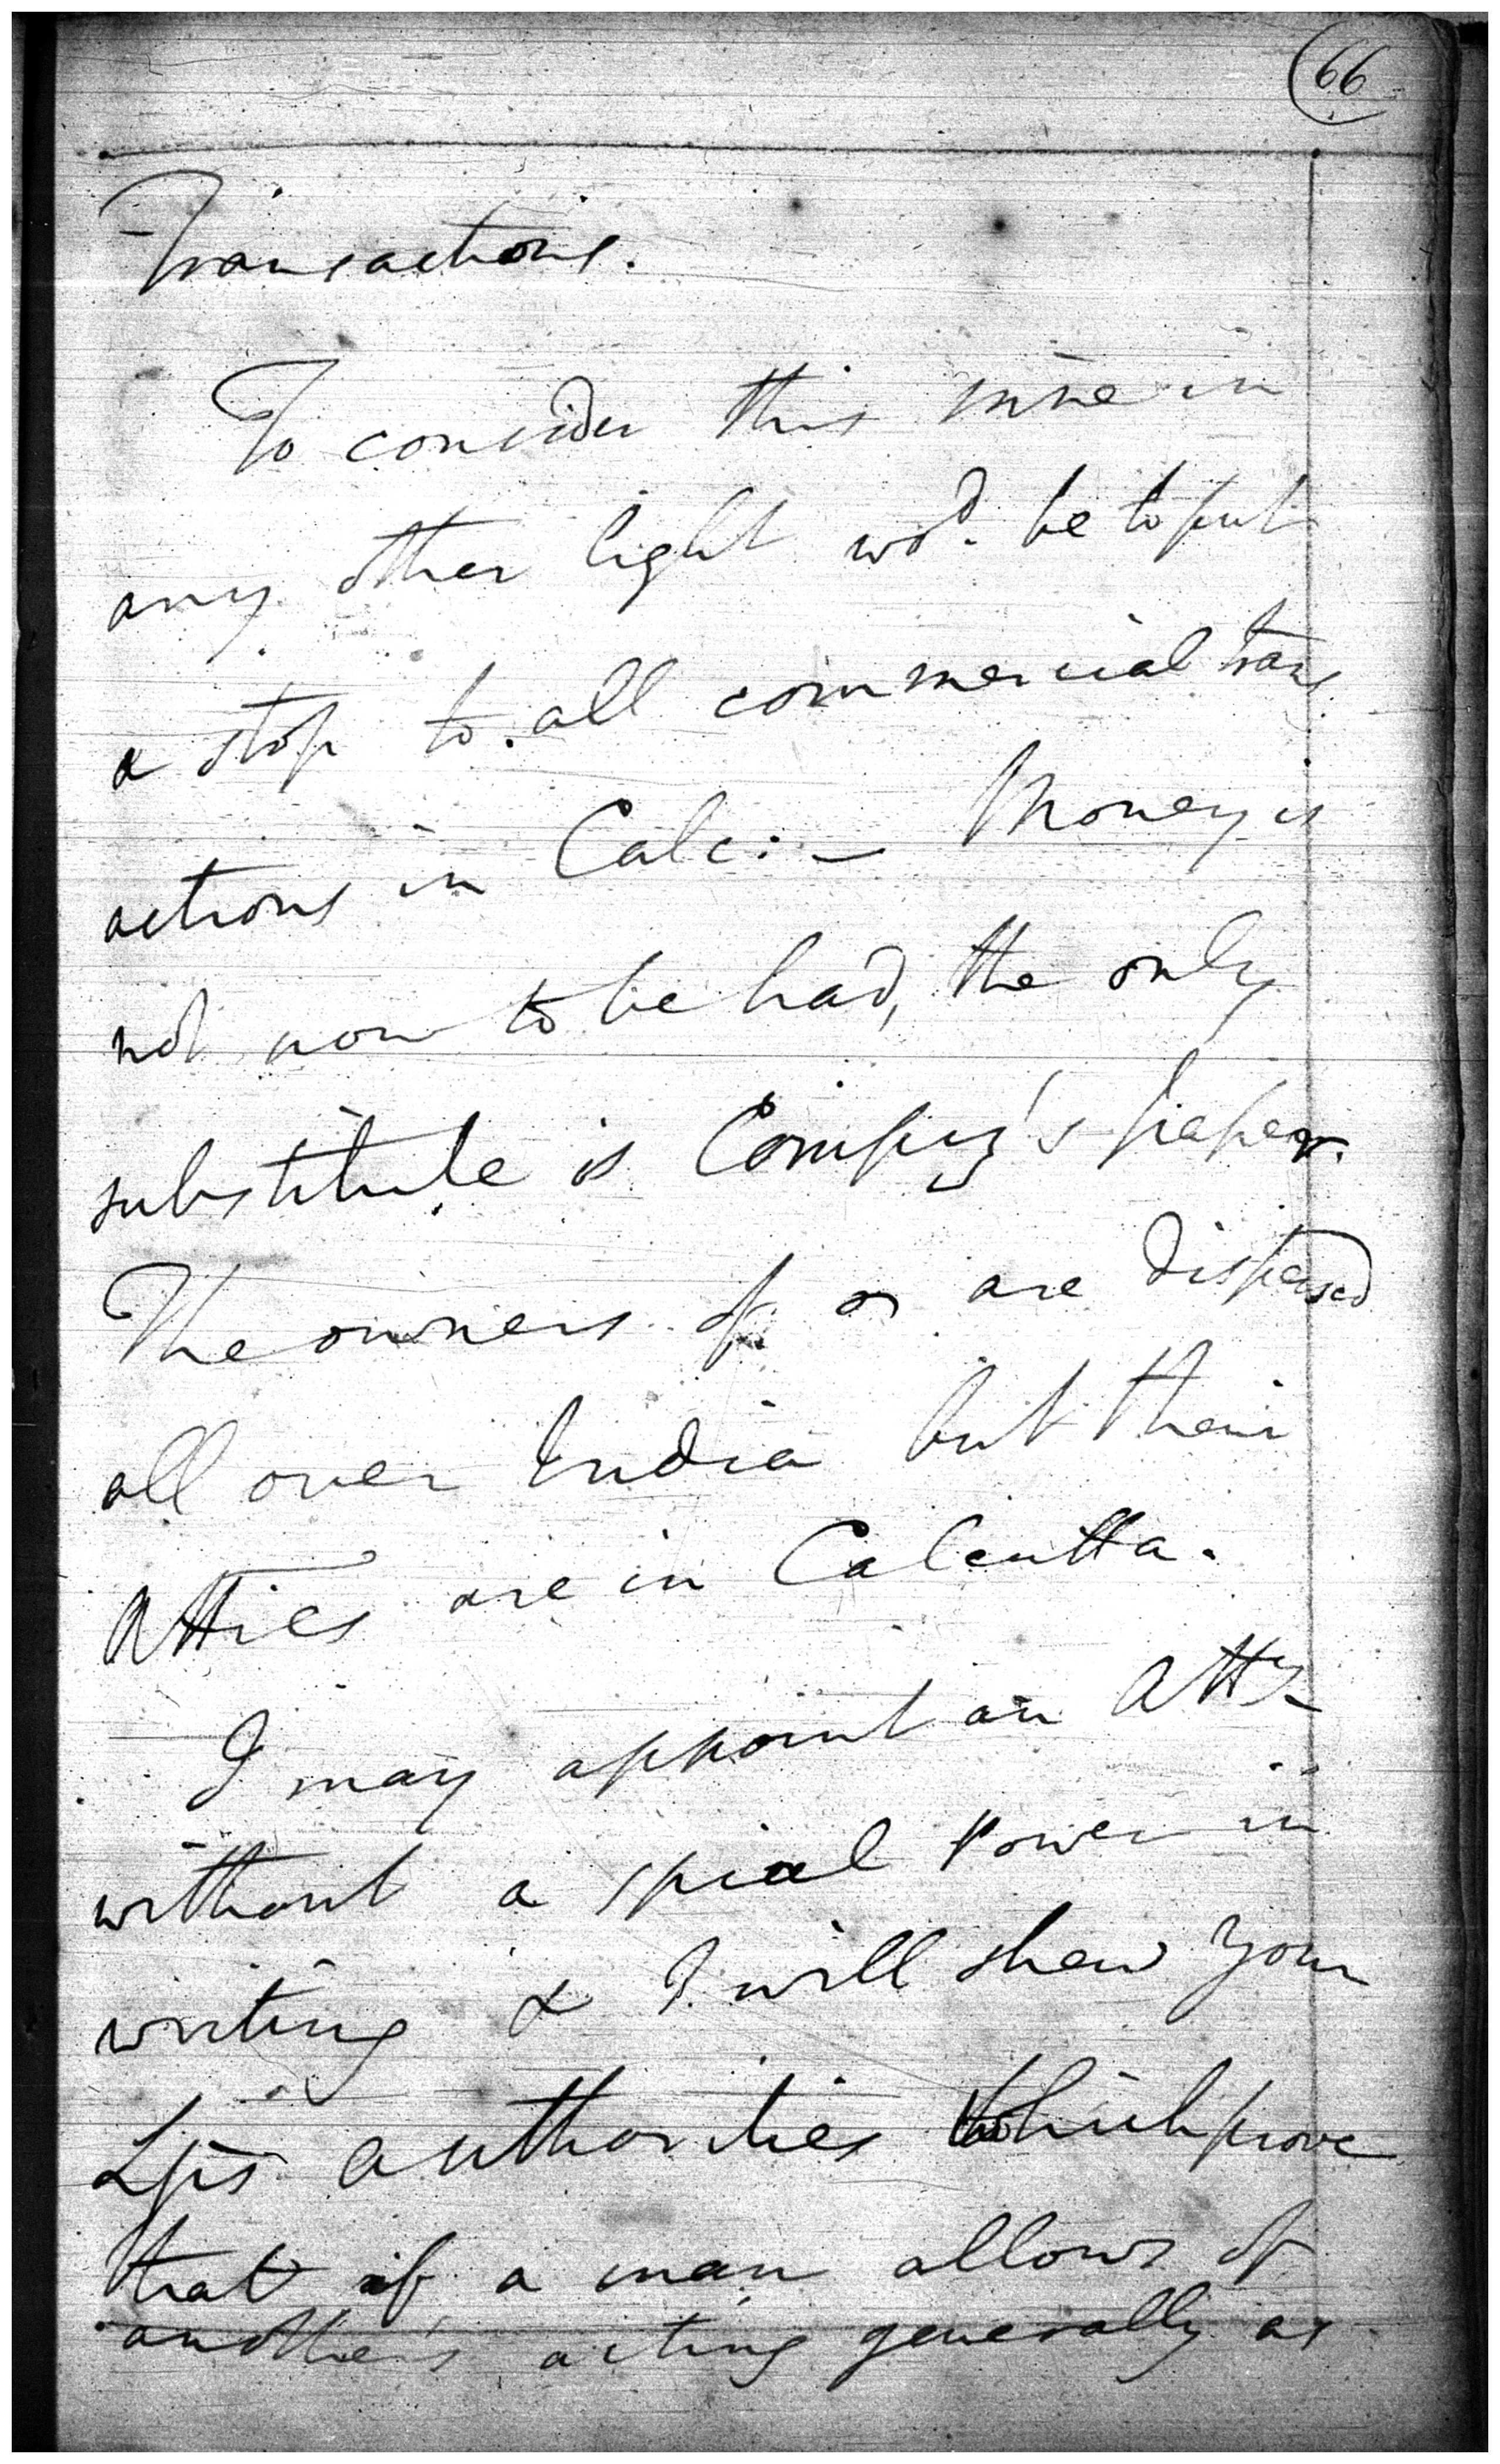 66
Transactions.
To consider this in
any other light wd. be to put
a stop to all commercial trans
actions in Calc: — Money is
not now to be had, the only
substitute is Compy's paper.
The owners of are dispersed
all over India but their
Atties are in Calcutta.
I may appoint an Atty
without a spial Power in
writing & I will shew your
Lps authorities which prove
that if a man allows of
another's acting generally as